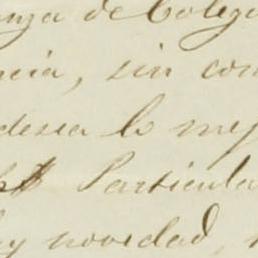 anza de Coleg
ncia, sin con
desea lo mej
Particula
hay novedad,